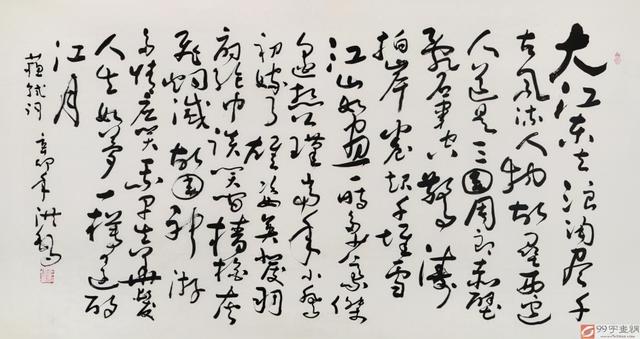 大江东去浪淘尽千
古风流人物故垒西边
人道是三國周郎赤壁
乱石穿空驚涛
拍岸卷起千堆雪
江山如畫一時多少豪傑
遥想公瑾当年小乔
初嫁了雄姿英发羽
扇纶巾谈笑间樯橹灰
飛烟滅故國神游
多情应笑我早生華髮
人生如梦一樽还酹
江月
蘇軾词 辛卯年
99字画网